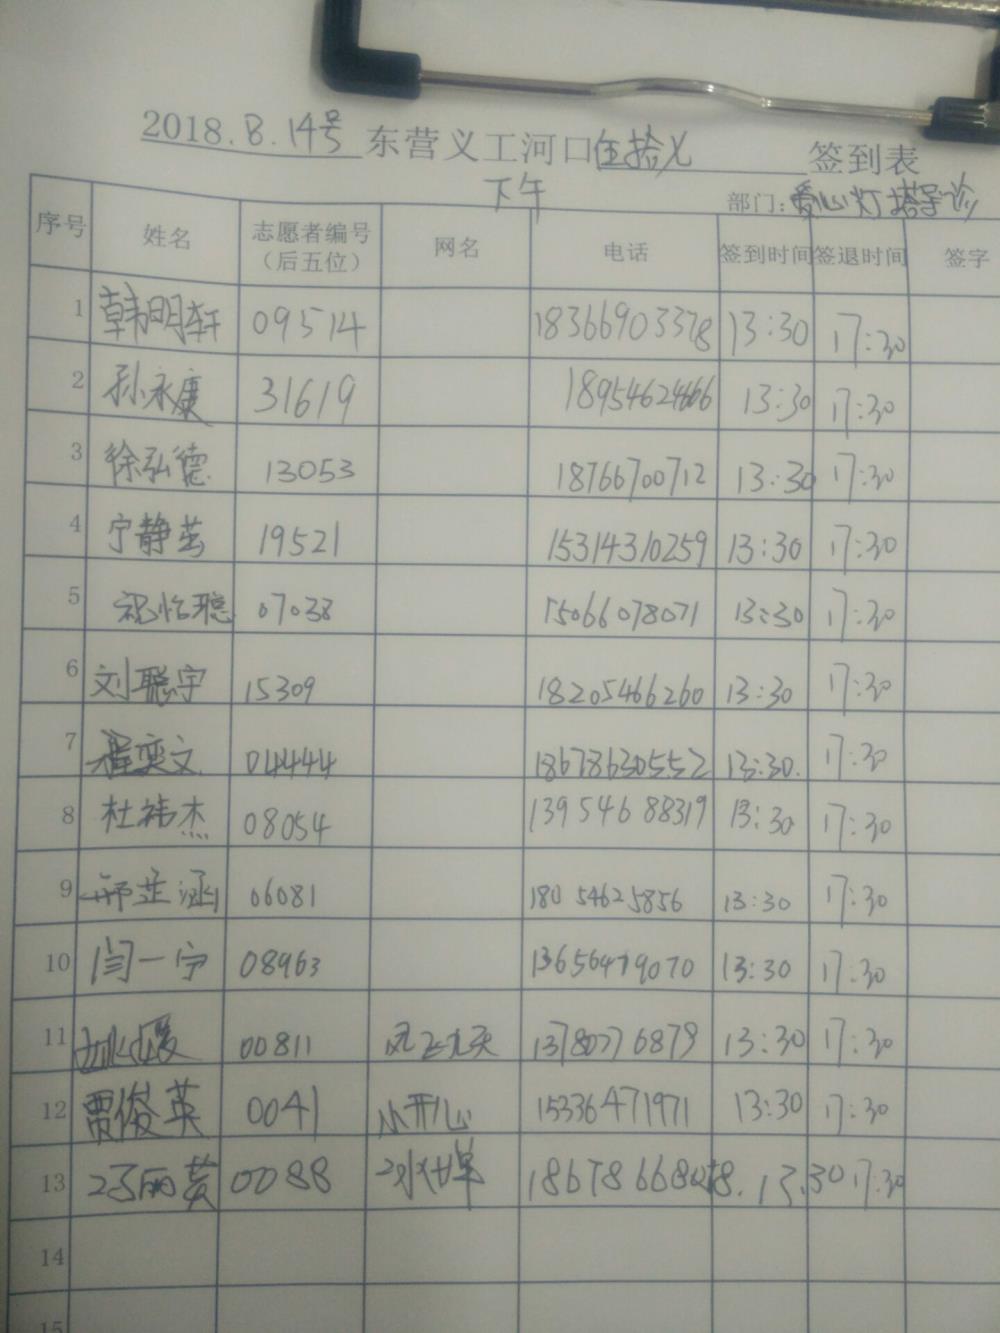 2018.8.14号 东营义工河口伍拾义 签到表
下午 部门:爱心灯塔导诊
序号 姓名 志愿者编号（后五位） 网名 电话 签到时间 签退时间 签字
1 韩明轩 09514 18366903378 13:30 17:30
2 孙永康 31619 13:30 17:30
3 徐弘德 13053 18766700712 13:30 17:30
4 宁静茹 19521 15314310259 13:30 17:30
5 祝怡聪 07038 15066078071 13:30 17:30
6 刘聪宇 15309 18205466260 13:30 17:30
7 程奕文 04444 18678630552 13:30. 17:30
8 杜祎杰 08054 13954688319 13:30 17:30
9 邢芷涵 06081 18054625856 13:30 17:30
10 闫一宁 08963 13656479070 13:30 17:30
11 00811 风飞九天 13780776879 13:30 17:30
12 贾俊英 0041 小开心 15336471971 13:30 17:30
13 0088 13.30 17:30
14
15